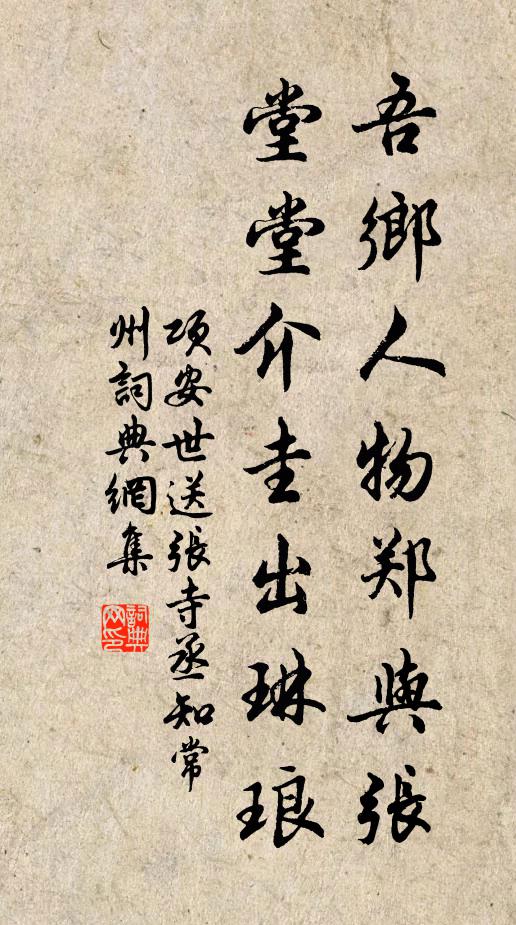 吾鄉人物郑與張
堂堂介圭出琳琅
項安世送張寺丞知常
州詞典網集
詞典
网印